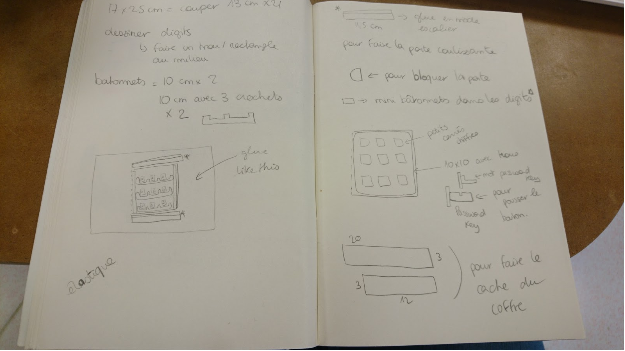 17 x 25 cm = couper 13 cm x 21
dessiner digits
↳ faire un trou / rectangle
au milieu
batonnets = 10 cm x 2
10 cm avec 3 crochets
x 2
glue
like this
élastique
→ glue en mode
escalier
pour faire la porte coulissante
← pour bloquer la porte
← mini bâtonnets dans les digits
petits
carrés
chiffres
10x10 avec trous
not pressed
key
← pour pousser le
baton
Pressed
key
20
3
3
12
pour faire le
cache du
coffre